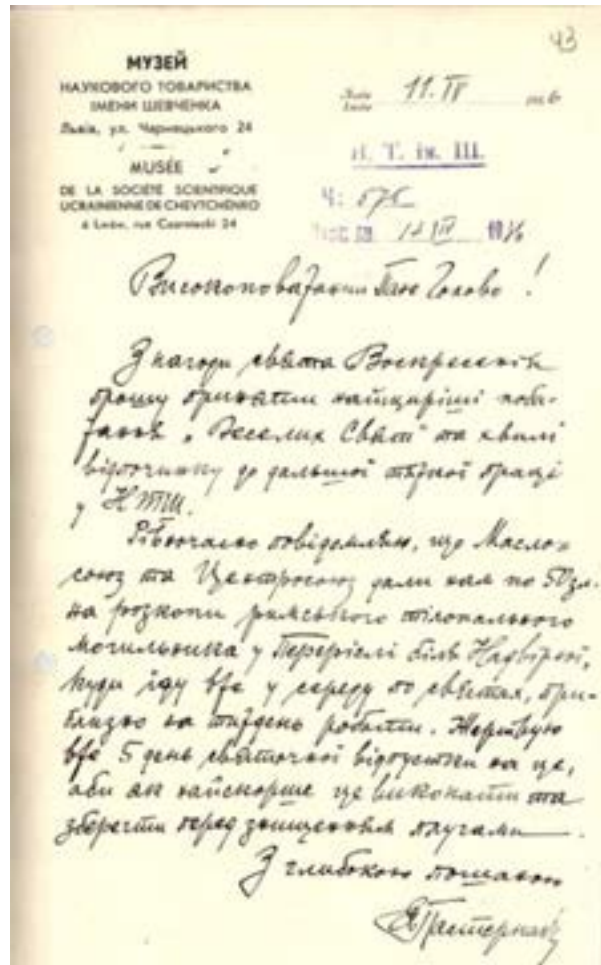 43
МУЗЕЙ
НАУКОВОГО ТОВАРИСТВА
ІМЕНИ ШЕВЧЕНКА
Львів, ул. Чарнецького 24
MUSÉE
DE LA SOCIÉTÉ SCIENTIFIQUE
UCRAINIENNE DE CHEVTCHENKO
à Lwów, rue Czarniecki 24
11. IV
Н. Т. ім. Ш.
Ч:
Високоповажаний Пане Голово!
З нагоди свята Воскресення
прошу прийняти найщиріші поба-
жання „Веселих Свят" та хвилі
відпочинку до дальшої тяжкої праці
у НТШ.
Рівночасно повідомляю, що Масло-
союз та Центросоюз дали нам по 50 зл.
на розкопи римського тілопального
могильника у Перерослі біля Надвірної,
куди їду вже у середу по святах, при-
близно на тиждень роботи. Жертвую
вже 5 день святочної відпустки на це,
аби як найскорше це виконати та
зберегти перед знищенням плугами.
З глибокою пошаною
ЯПастернак